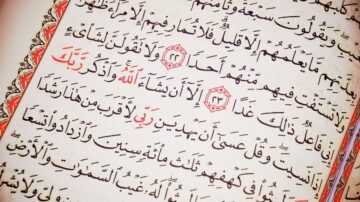 ويقولون سبعة وثامنهم
بعدتهم ما يعلمهم إلا قليل فلا تمار فيهم إلا مراء
ولا تستفت فيهم منهم أحدا ٢٢ ولا تقولن لشاىء
إِنِّي فَاعِلٌ ذَٰلِكَ غَدًا ٢٣ إِلَّا أَن يَشَاءَ اللَّهُ وَاذْكُر رَّبَّكَ
إِذَا نَسِيتَ وَقُلْ عَسَىٰ أَن يَهْدِيَنِ رَبِّي لِأَقْرَبَ مِنْ هَٰذَا رَشَدًا
فِي كَهْفِهِمْ ثَلَٰثَ مِائَةٍ سِنِينَ وَازْدَادُوا تِسْعًا
لَهُ غَيْبُ السَّمَٰوَٰتِ وَالْأَرْضِ
ولي ولا